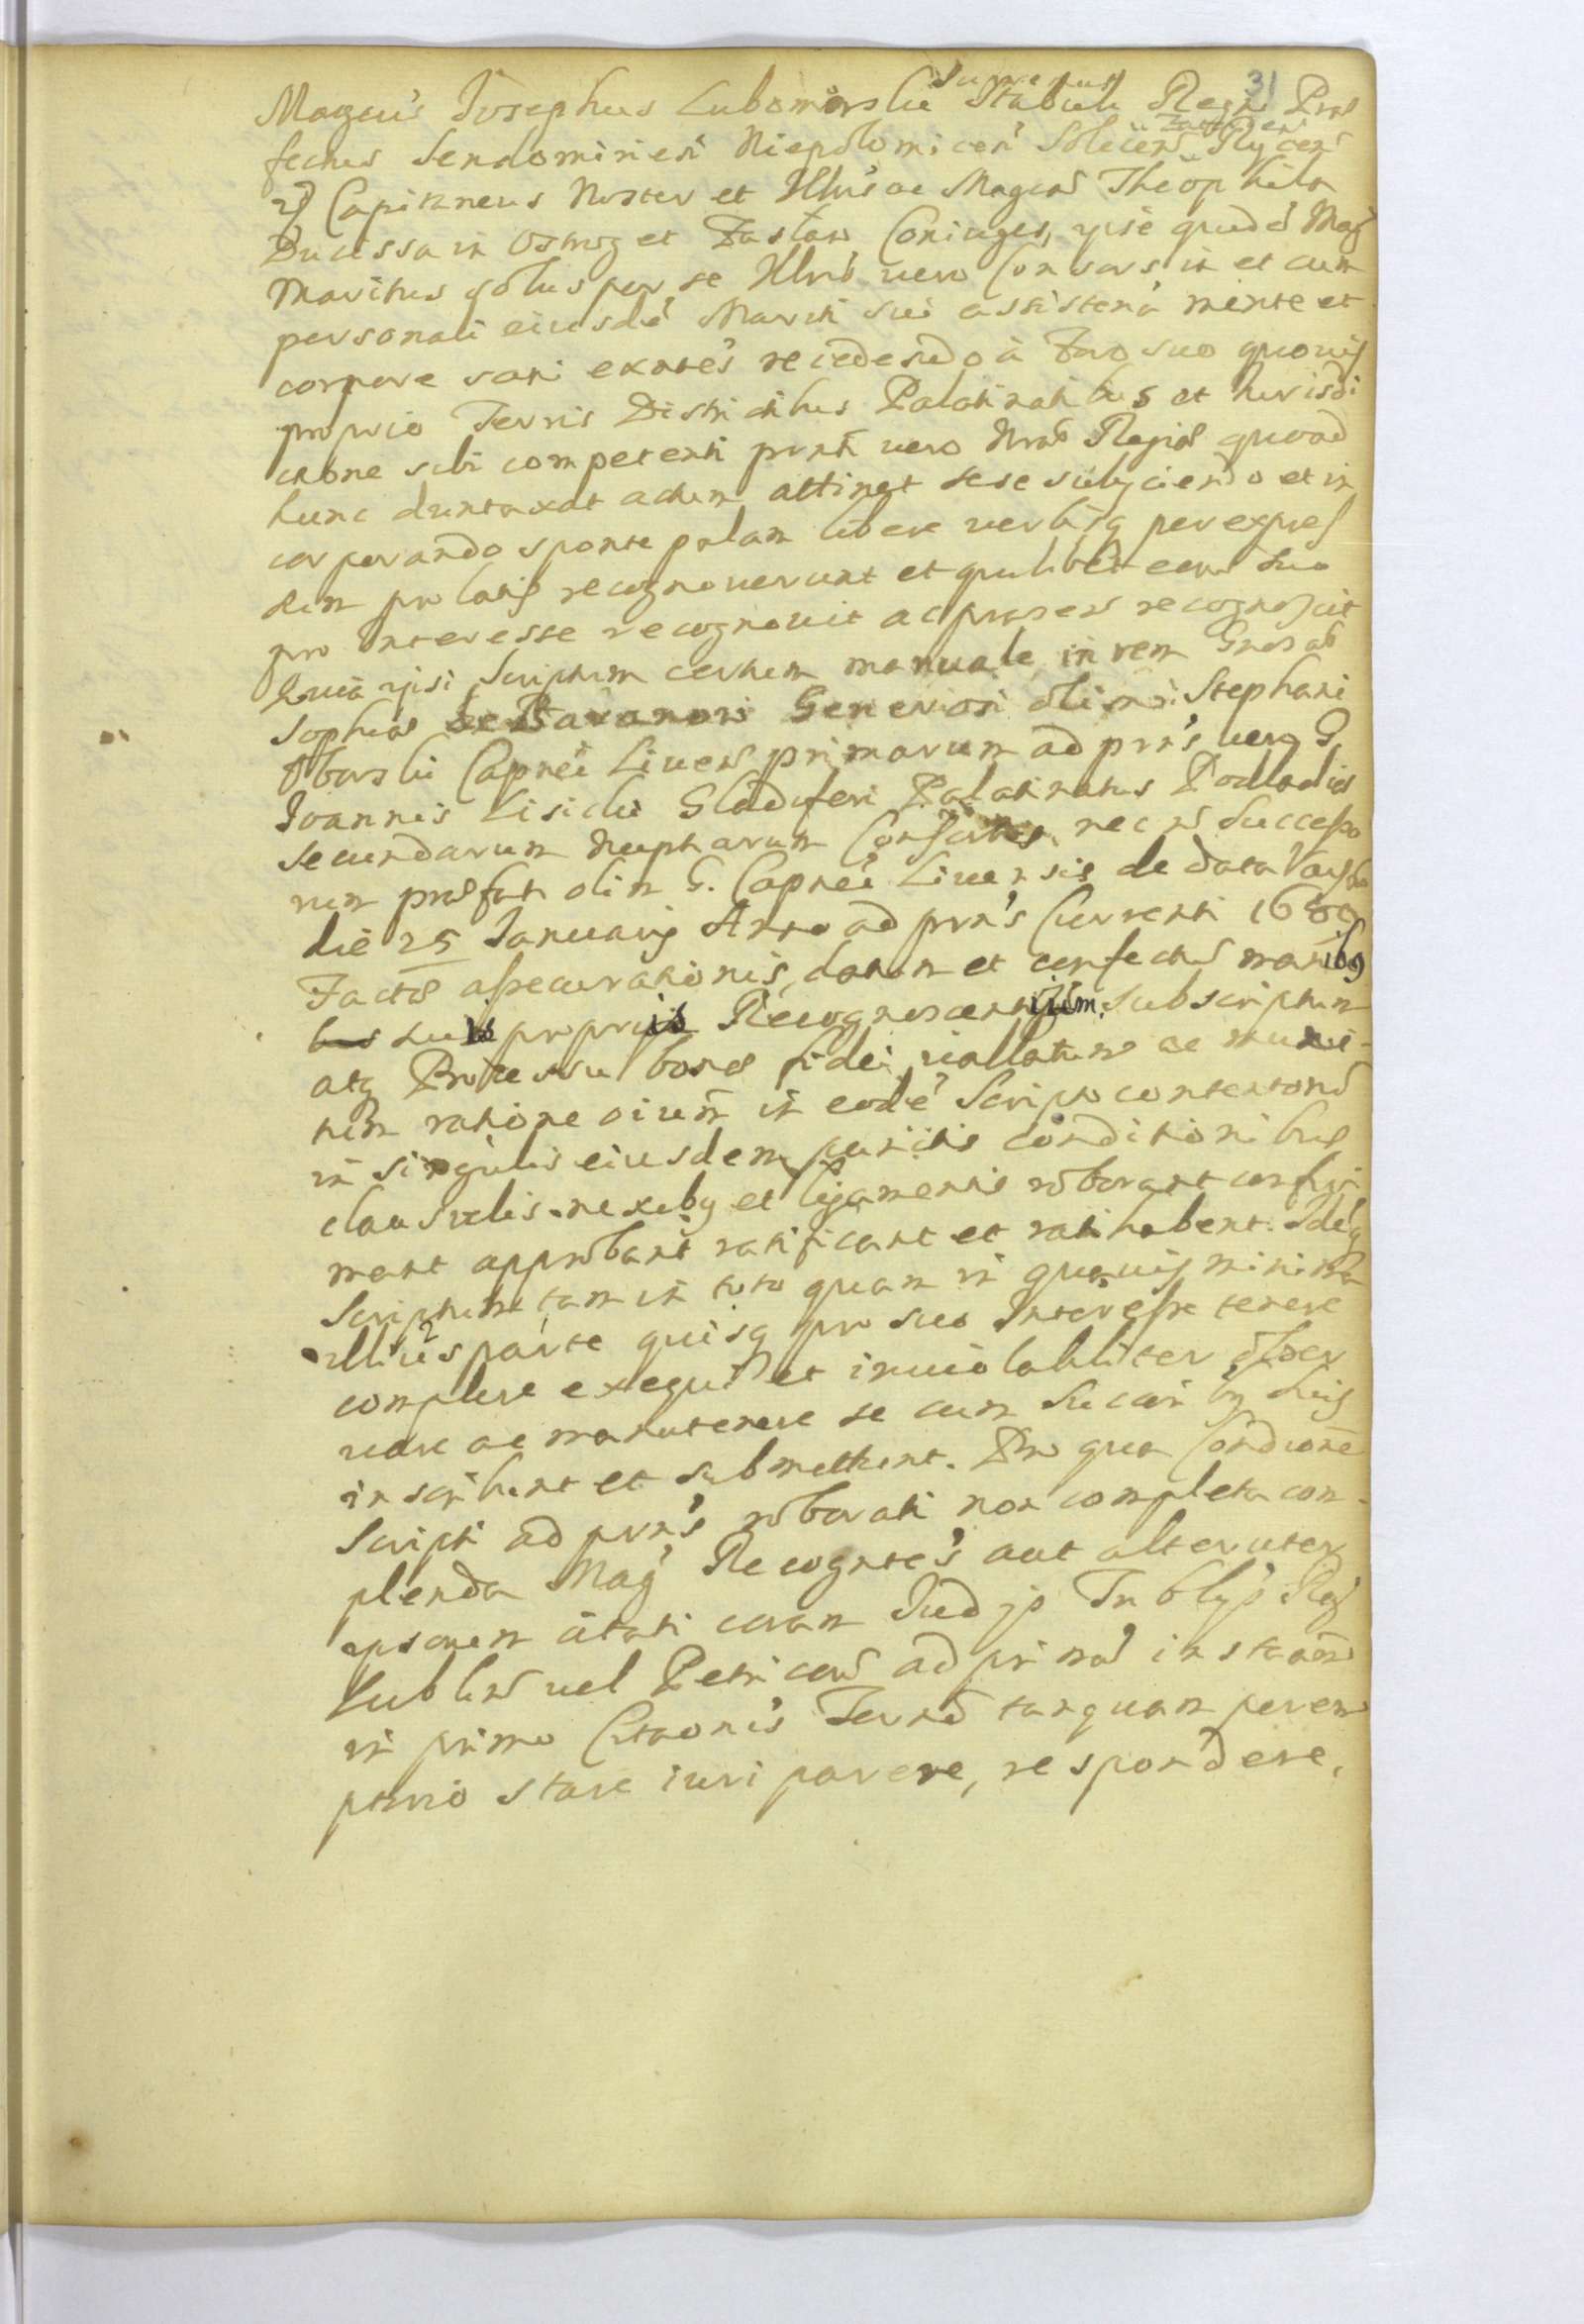 31
Magcus Josephus Lubomirskii Supremus Stabuli Regni Præ
fectus Sendomirien Niepolomicen Solecen Zatorien Rycen
Capitaneus Noster et Illris ac Magca Theophila
Ducissa in Ostrog et Zasław Coniuges, ipse quidé Mag
Maritus solus per se Illris uero Consors in et cum
personali eiusdé Mariti sui assistená mente et
corpore sani exntes recedendo à Foro suo quouis
proprio Terris Districtibus Palatinatibus et Iurisdi
ctione sibi competenti prnti uero Nræ Regiæ quoad
hunc duntaxat actum attinet sese subijciendo et in
corporando sponte palam libere uerbisq per expres
sum prolatis recognouerunt et quilibet eorum suo
pro Interesse recognouit ac præsen recognoscit
Quia ipsi Scriptum certum manuale in rem Gnosæ
Sophiæ Generosi olim Stephani
Oborskii Capnei Liuen primarum ad prns uero G
Joannis Kisicki Gladiferi Palatinatus Podlachiæ
secundarum nuptiarum Consortis, nec n Successo
rum præfati olim G. Capnei Liuensis de data
die 25 Januarij Anno ad prns Currenti 1680
Factæ assecurationis, datum et confectum manibq
suis proprijs Recognoscentium subscriptum
atq Processu bonæ fidei uallatum ac muni-
tum ratione oium in eodé Scripto contentorum
in singulis eiusdem punctis conditionibus
clausulis nexibq et ligamentis roborant confir
mant approbant ratificant et ratihabent. Idéq
Scriptum tam in toto quam in quauis minima
illius parte quisq pro suo Interesse tenere
complere exequi et inuiolabiliter obser
uare ac manutenere se cum Succoribq suis
inscribunt et submittunt. Pro qua Condione
Scripti ad prns roborati non completa com-
plenda Mag Recognten's aut alteruter
ipsorum citati coram Judjo Tribblijs Reg
Lublin uel Petricou ad primá instaom
in primo Citaonis Termo tanquam perem
ptorio stare iuri parere, respondere,